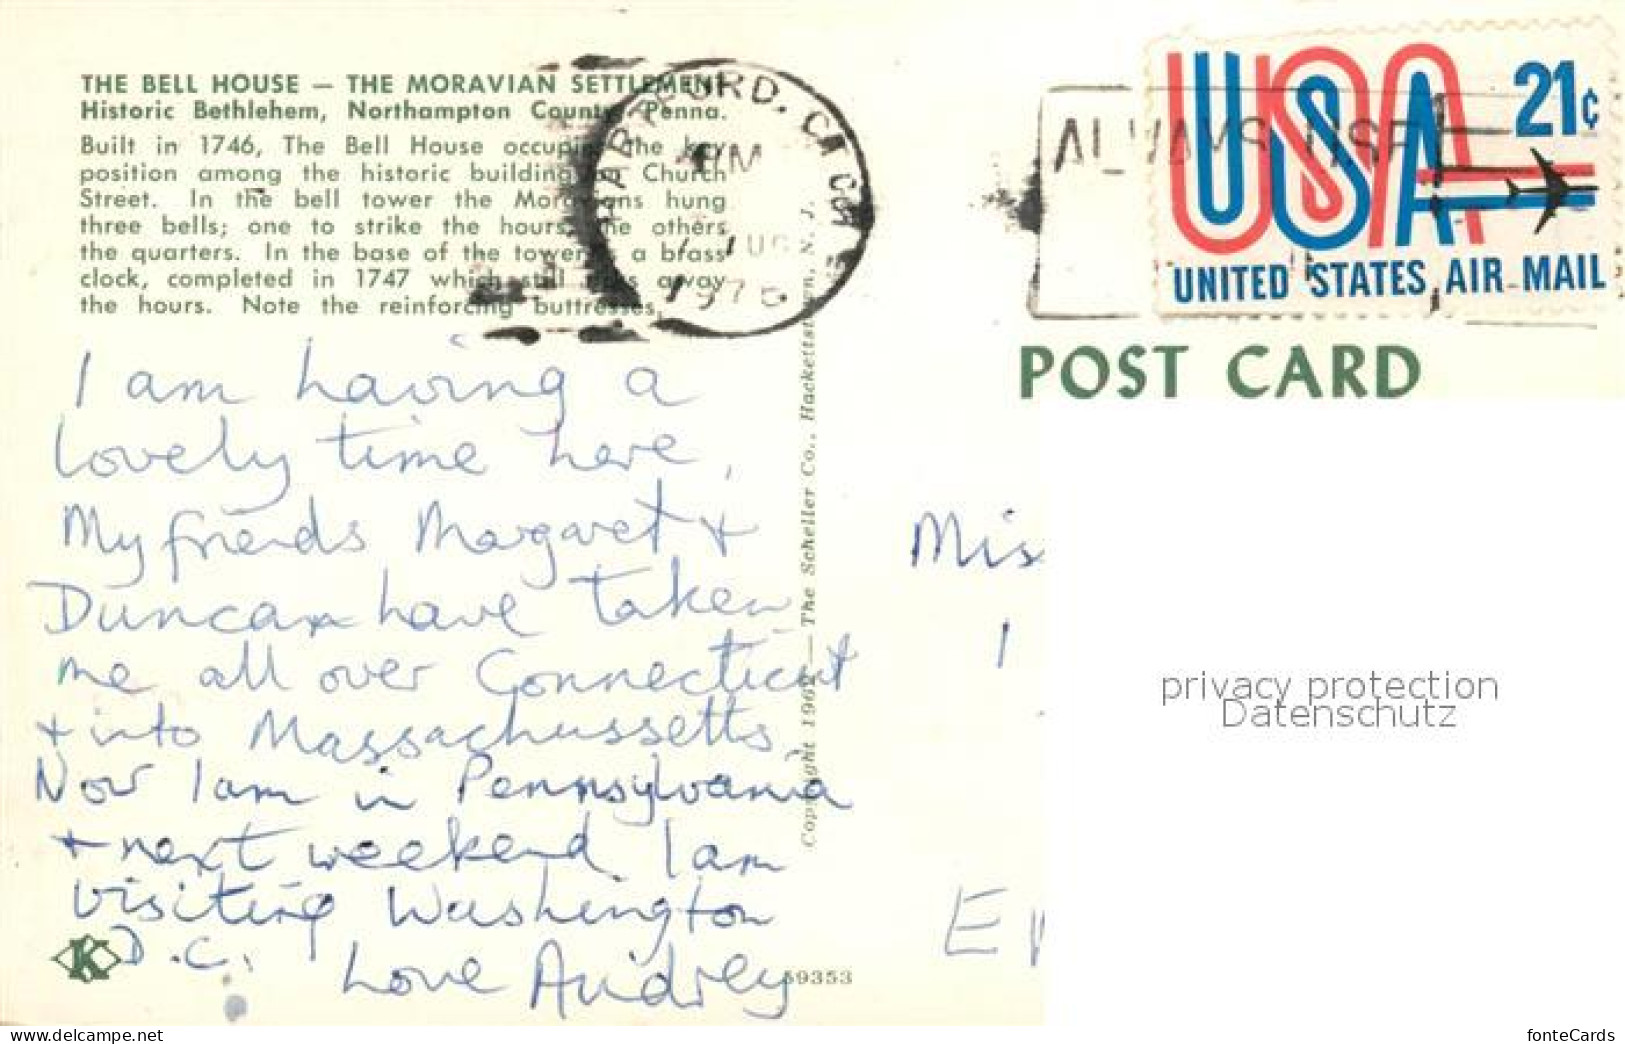 THE BELL HOUSE — THE MORAVIAN SETTLEMENT
Historic Bethlehem, Northampton County, Penna.
Built in 1746, The Bell House occupies the key
position among the historic buildings on Church
Street. In the bell tower the Moravians hung
three bells; one to strike the hours, the others
the quarters. In the base of the tower, a brass
clock, completed in 1747 which still away
the hours. Note the reinforcing buttresses.
I am having a
lovely time here,
My friends Margaret +
Duncan have taken
me all over Connecticut
+ into Massachussetts
Now I am in Pennsylvania
+ next weekend I am
visiting Washington
D.C.
Love Audrey
K
59353
Copyright 196 — The Scheller Co., Hackettstown, N. J.
HARTFORD, CT
PM
AUG
1975
ALWAYS USE
USA 21c
UNITED STATES AIR MAIL
POST CARD
Mis
1
E
privacy protection
Datenschutz
www.delcampe.net
fonteCards